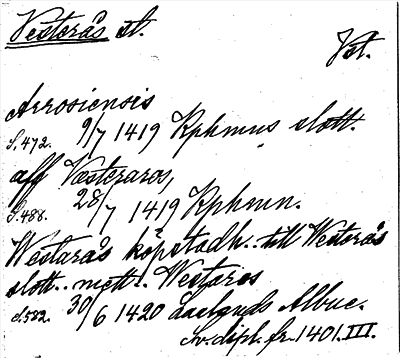 Vesterås st.
Vst.
Arosiensis
S. 472. 9/7 1419 Kphmus slott.
aff Væsteraros,
S. 488. 28/7 1419 Kphmn.
Westarås köpstadh.. till Westerås
slott.. mett.. Westáros
S. 582. 30/6 1420 Laglands Albuc.
Sv. dipl. fr. 1401. III.